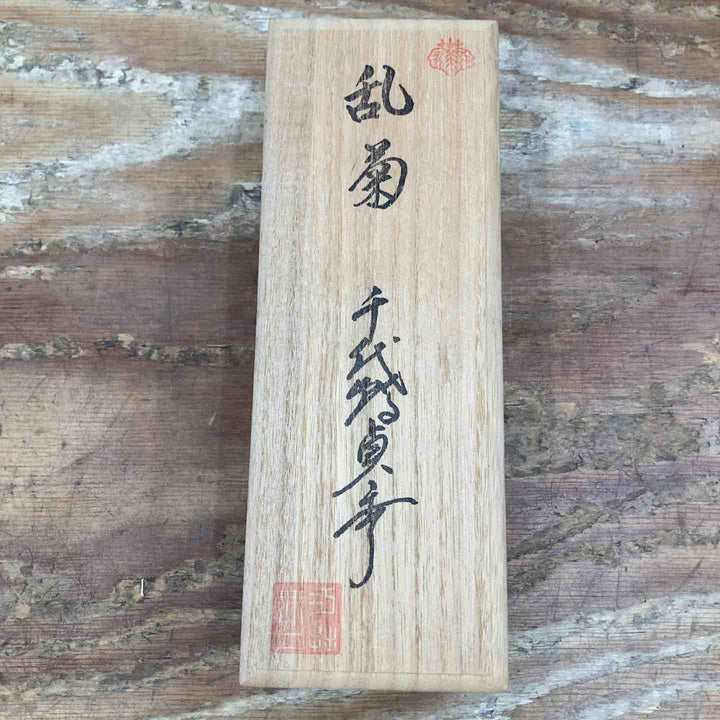 乱菊
千代鶴貞秀